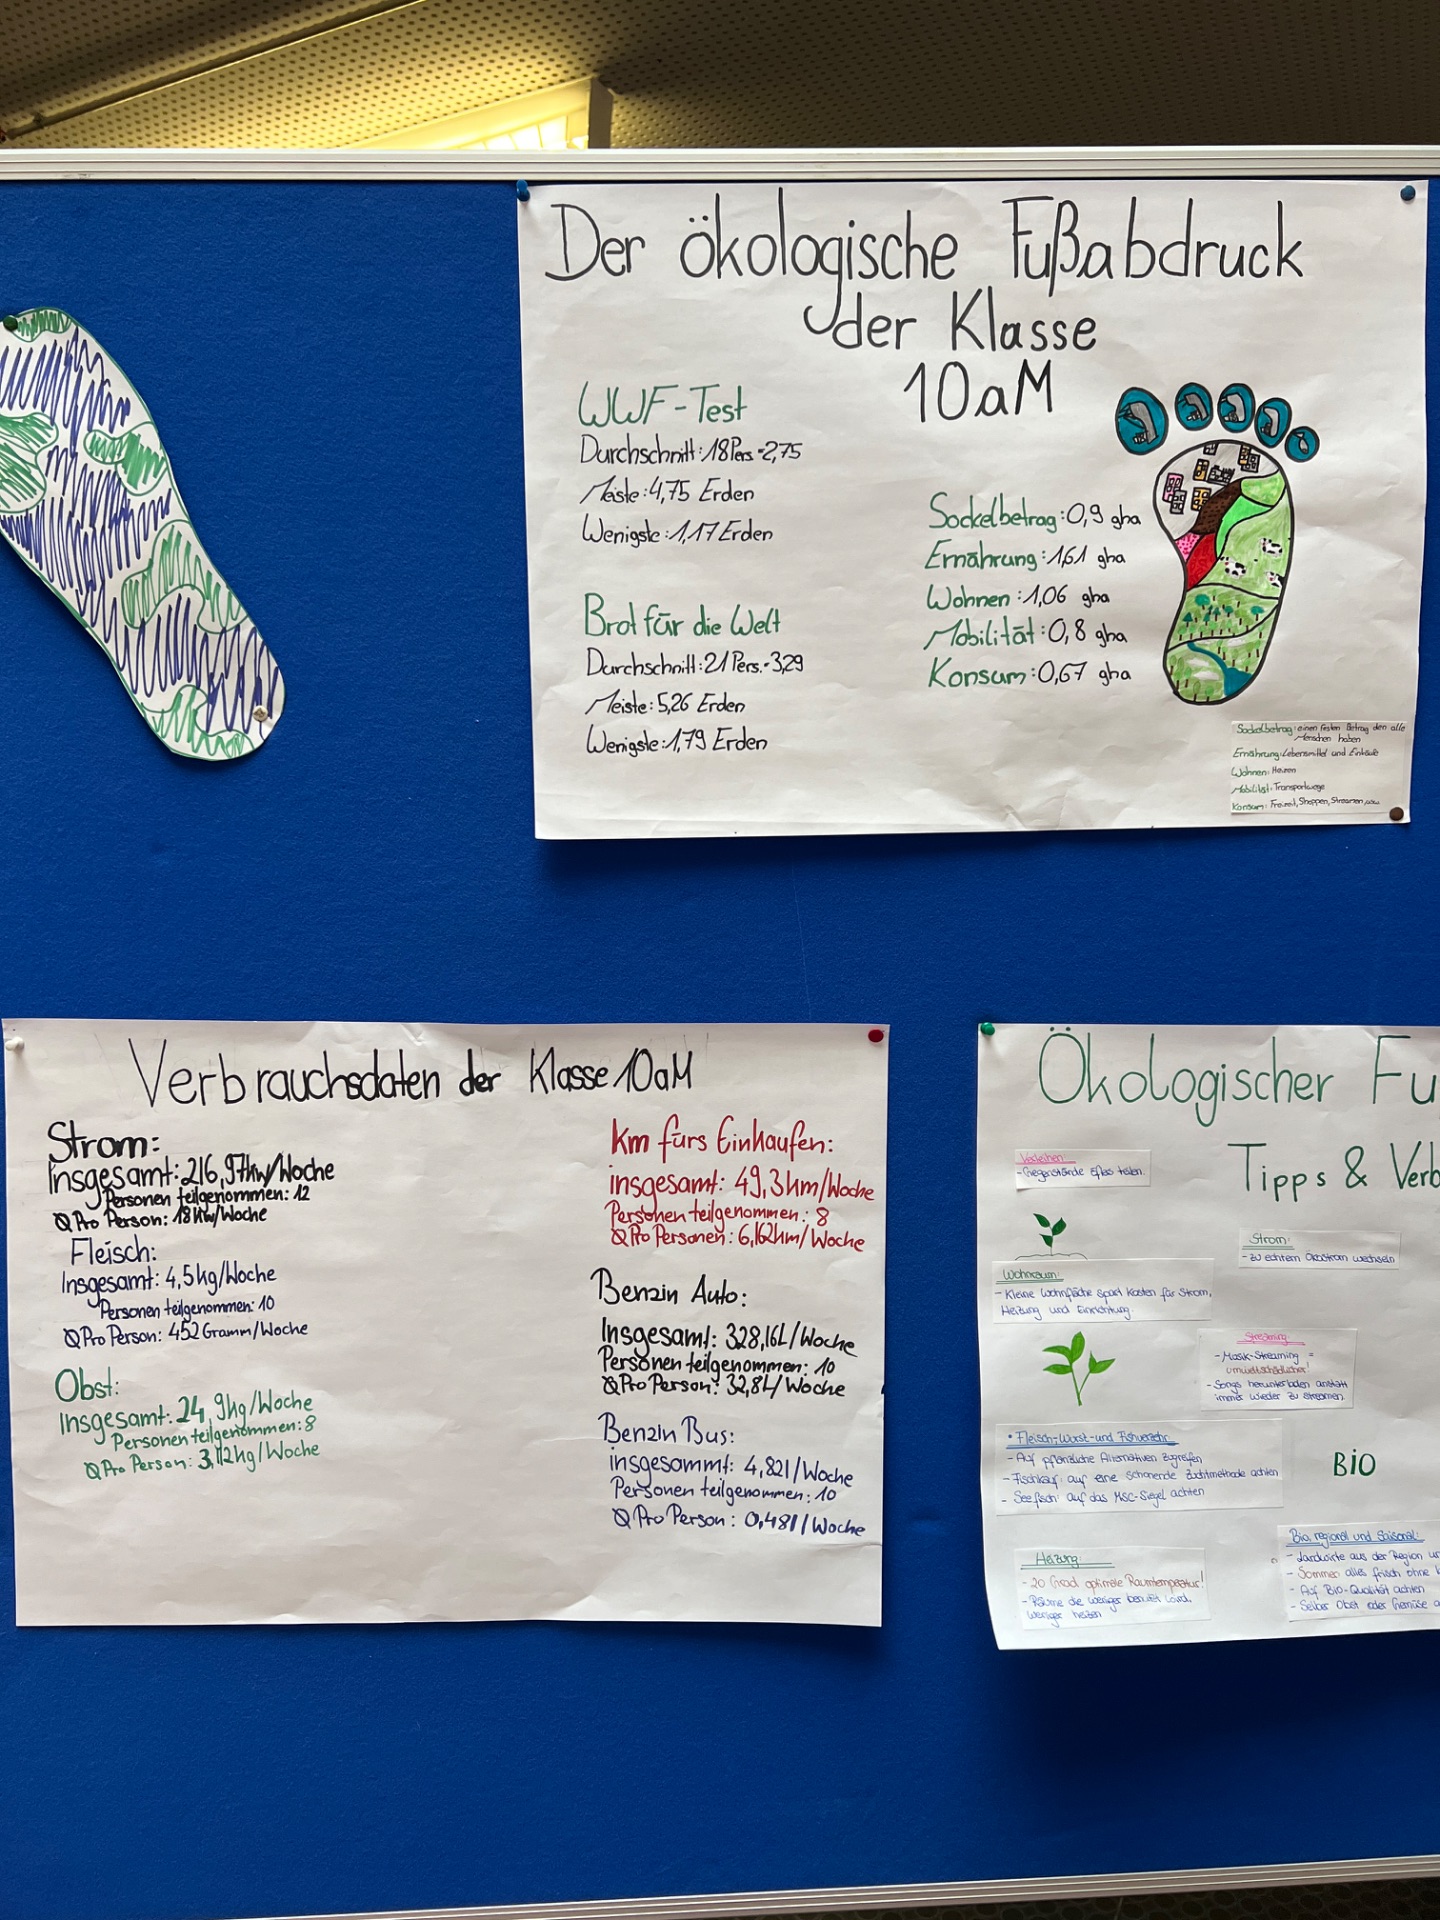 Der ökologische Fußabdruck
der Klasse
10aM
WWF-Test
Durchschnitt: 18Pers.=2,75
Meiste: 4,75 Erden
Wenigste: 1,17 Erden
Brot für die Welt
Durchschnitt: 21 Pers.=3,29
Meiste: 5,26 Erden
Wenigste: 1,79 Erden
Sockelbetrag: 0,9 gha
Ernährung: 1,61 gha
Wohnen: 1,06 gha
Mobilität: 0,8 gha
Konsum: 0,67 gha
Sockelbetrag: einen festen Betrag den alle
Menschen haben
Ernährung: Lebensmittel und Einkäufe
Wohnen: Heizen
Mobilität: Transportwege
Konsum: Freizeit, Shoppen, Streamen, usw.
Verbrauchsdaten der Klasse 10aM
Strom:
Insgesamt: 216,97kw/Woche
Personen teilgenommen: 12
Ø Pro Person: 18Kw/Woche
Fleisch:
Insgesamt: 4,5kg/Woche
Personen teilgenommen: 10
Ø Pro Person: 452 Gramm/Woche
Obst:
Insgesamt: 24,9kg/Woche
Personen teilgenommen: 8
Ø Pro Person: 3,112kg/Woche
Km fürs Einkaufen:
insgesamt: 49,3km/Woche
Personen teilgenommen: 8
Ø Pro Personen: 6,162km/Woche
Benzin Auto:
Insgesamt: 328,16L/Woche
Personen teilgenommen: 10
Ø Pro Person: 32,8L/Woche
Benzin Bus:
insgesammt: 4,82l/Woche
Personen teilgenommen: 10
Ø Pro Person: 0,48l/Woche
Ökologischer Fu
Tipps & Verb
Verleihen:
teilen.
Strom:
- zu echtem Ökostrom wechseln
Wohnraum:
- Kleine Wohnfläche spart Kosten für Strom,
Heizung und Einrichtung.
Streaming:
- Musik-Streaming =
umweltschädlicher!
- Songs herunterladen anstatt
immer wieder zu streamen.
• Fleisch-, Wurst- und Fischverzehr
- Auf pflanzliche Alternativen zugreifen
- Fischkauf: auf eine schonende Zuchtmethode achten
- Seefisch: auf das MSC-Siegel achten
BIO
Heizung:
- 20 Grad optimale Raumtemperatur!
- Räume die weniger benutzt wird,
weniger heizen
Bio, regional und Saisonal:
- Landwirte aus der Region
- Sommer alles frisch ohne
- Auf Bio-Qualität achten
- Selber Obst oder Gemüse